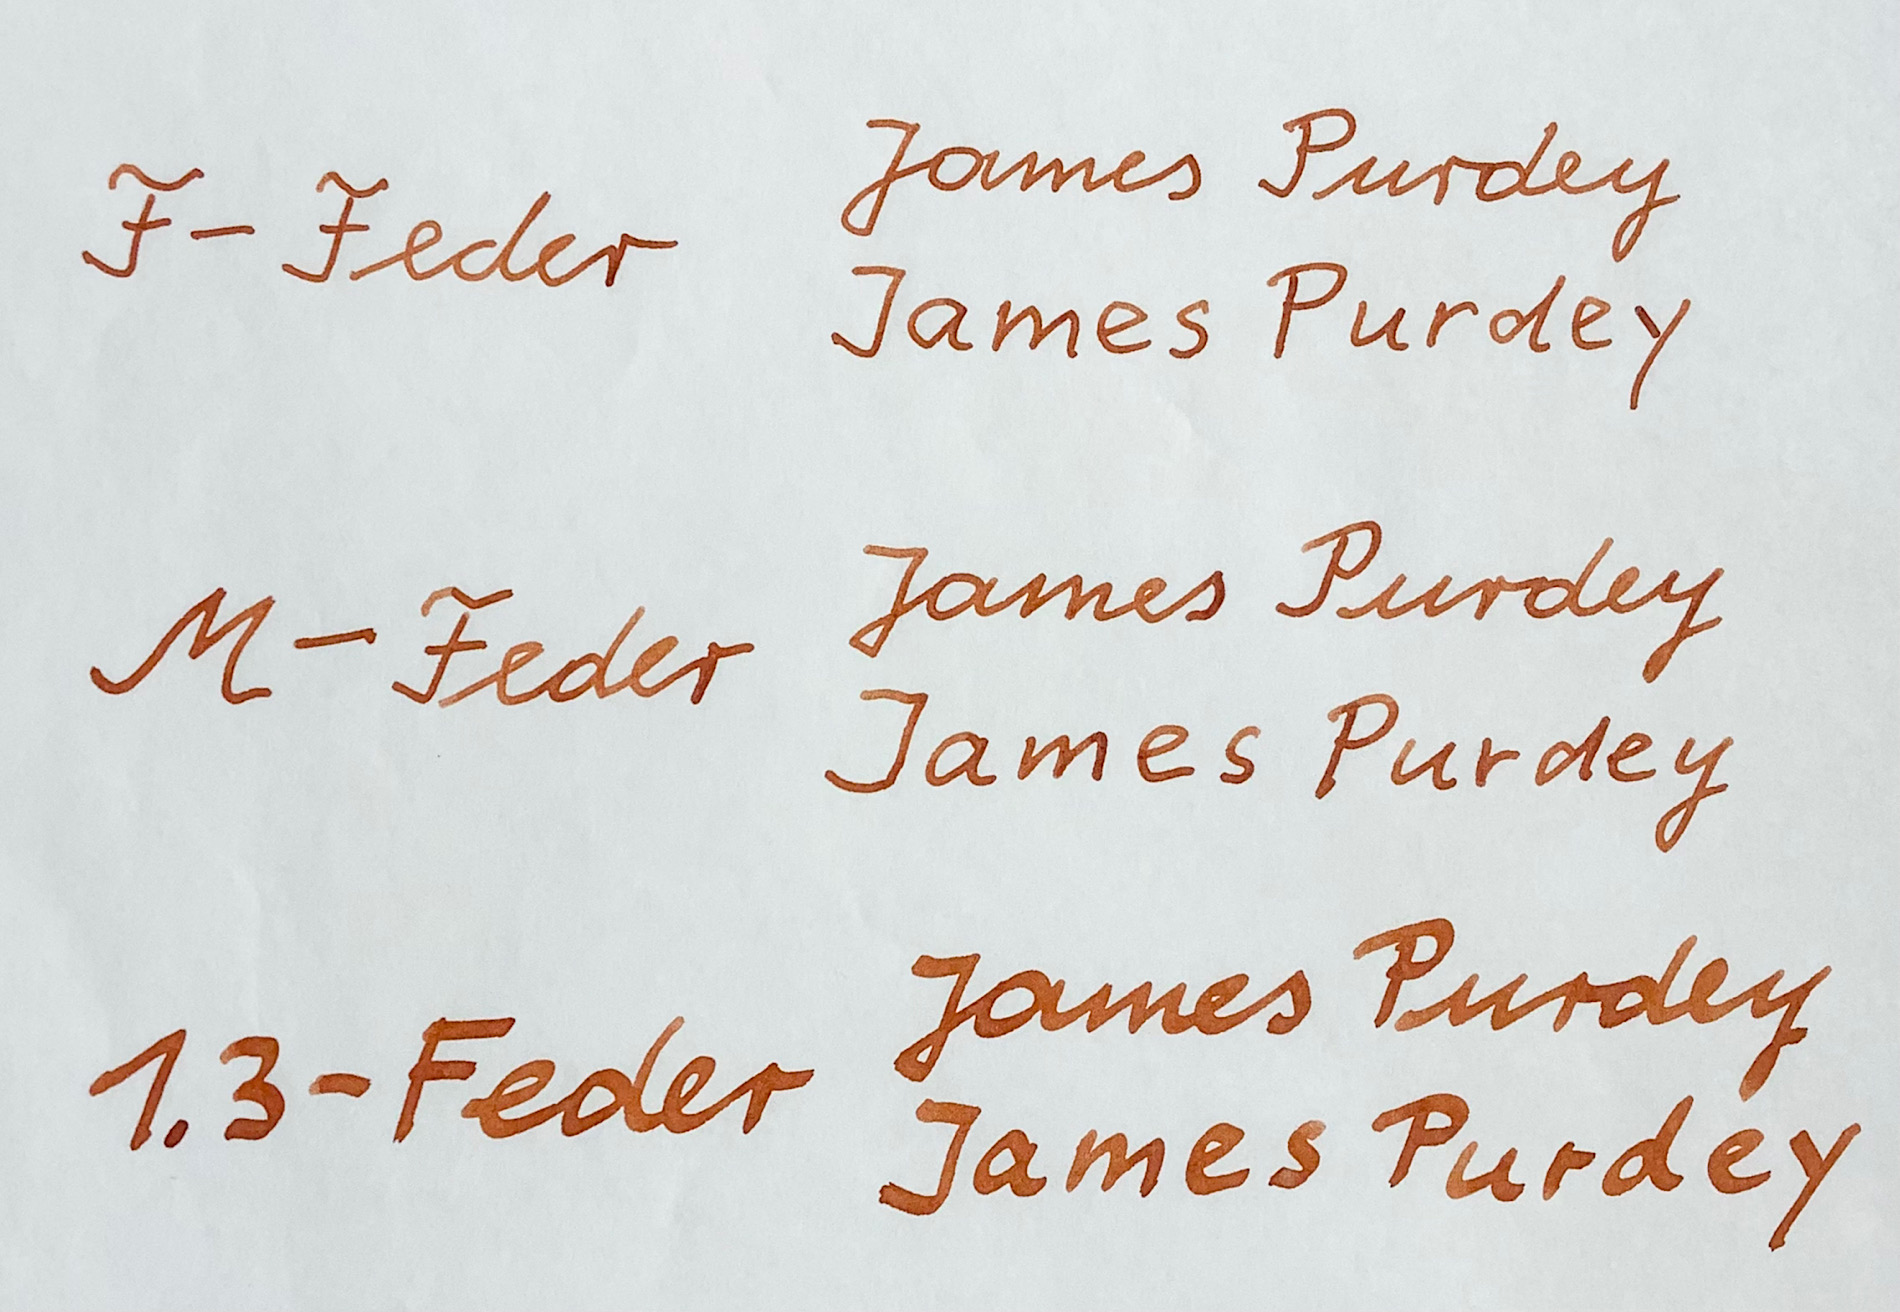 F-Feder James Purdey
James Purdey
M-Feder James Purdey
James Purdey
1.3-Feder James Purdey
James Purdey